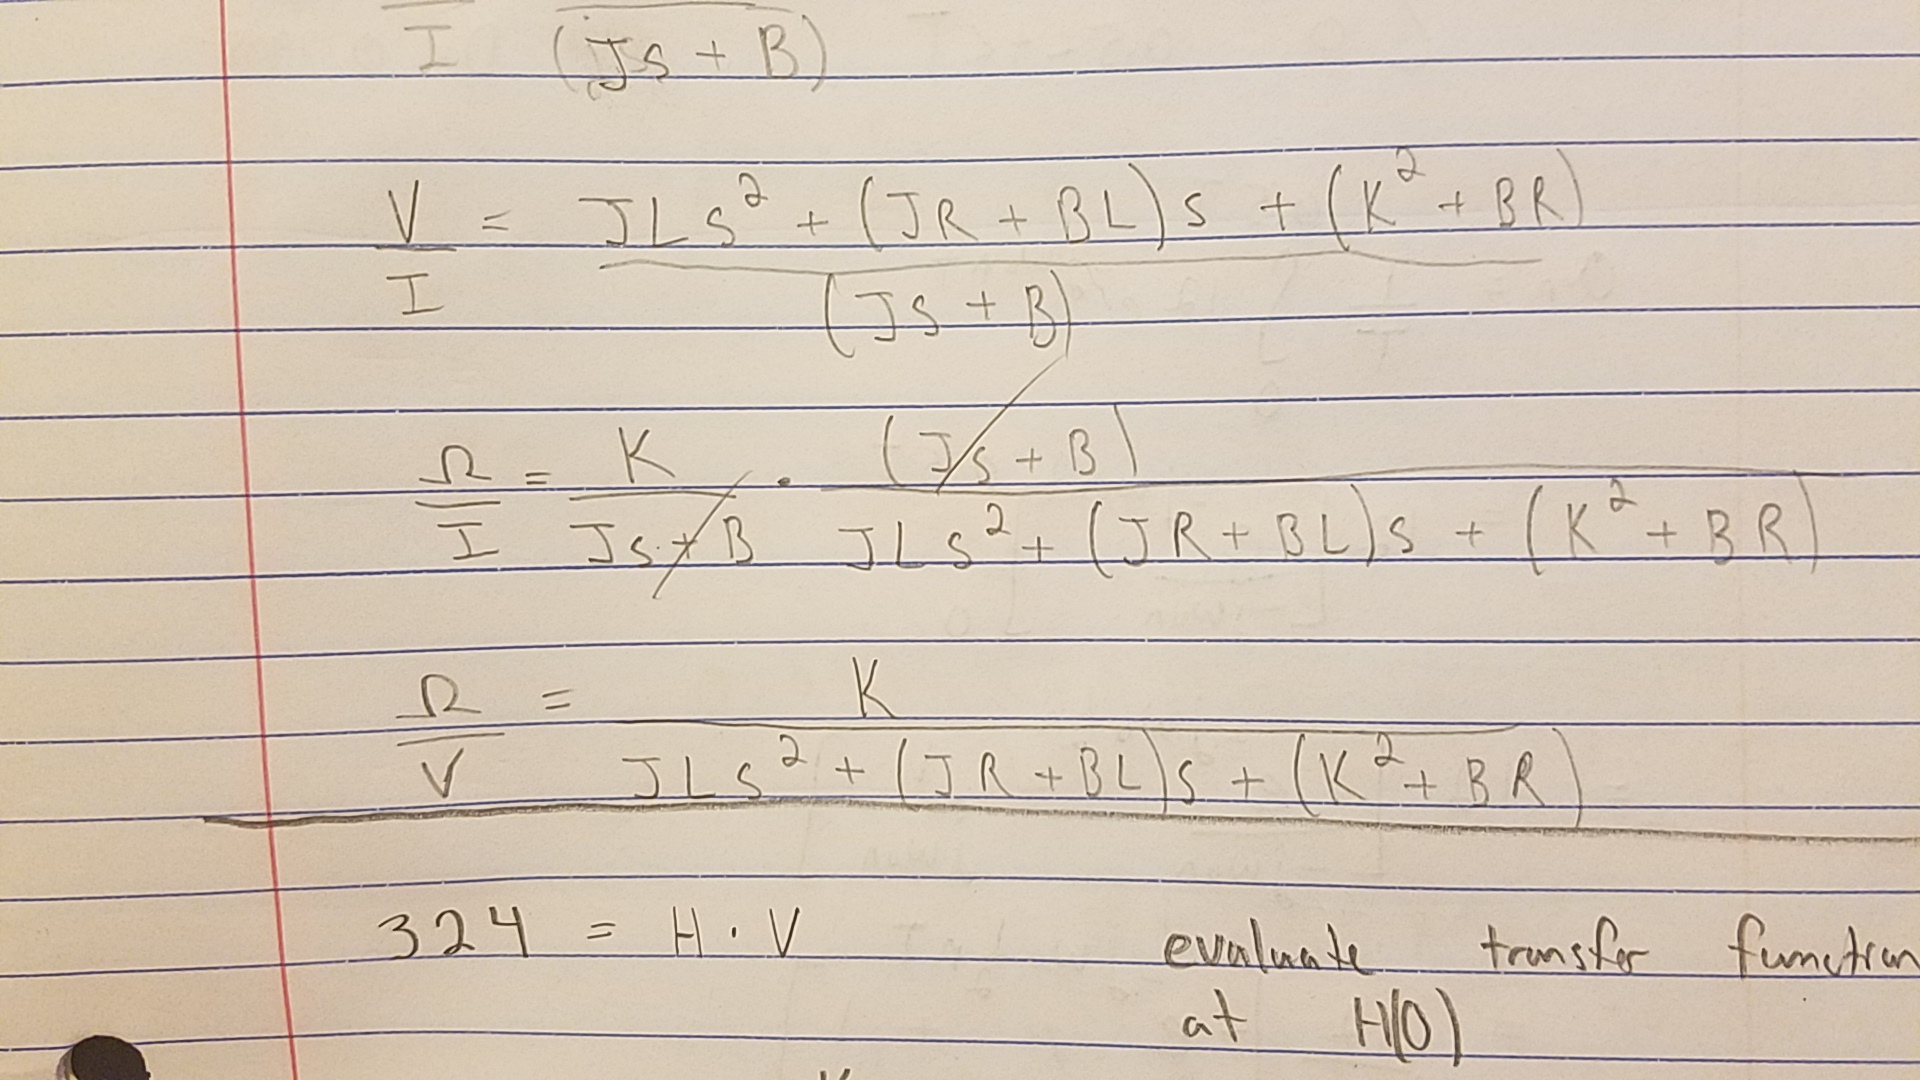 I (Js + B)
V/I = JLs² + (JR + BL)s + (K² + BR) / (Js + B)
Ω/I = K/Js + B · (Js + B) / JLs² + (JR + BL)s + (K² + BR)
Ω/V = K / JLs² + (JR + BL)s + (K² + BR)
324 = H · V evaluate transfer function
at H(0)